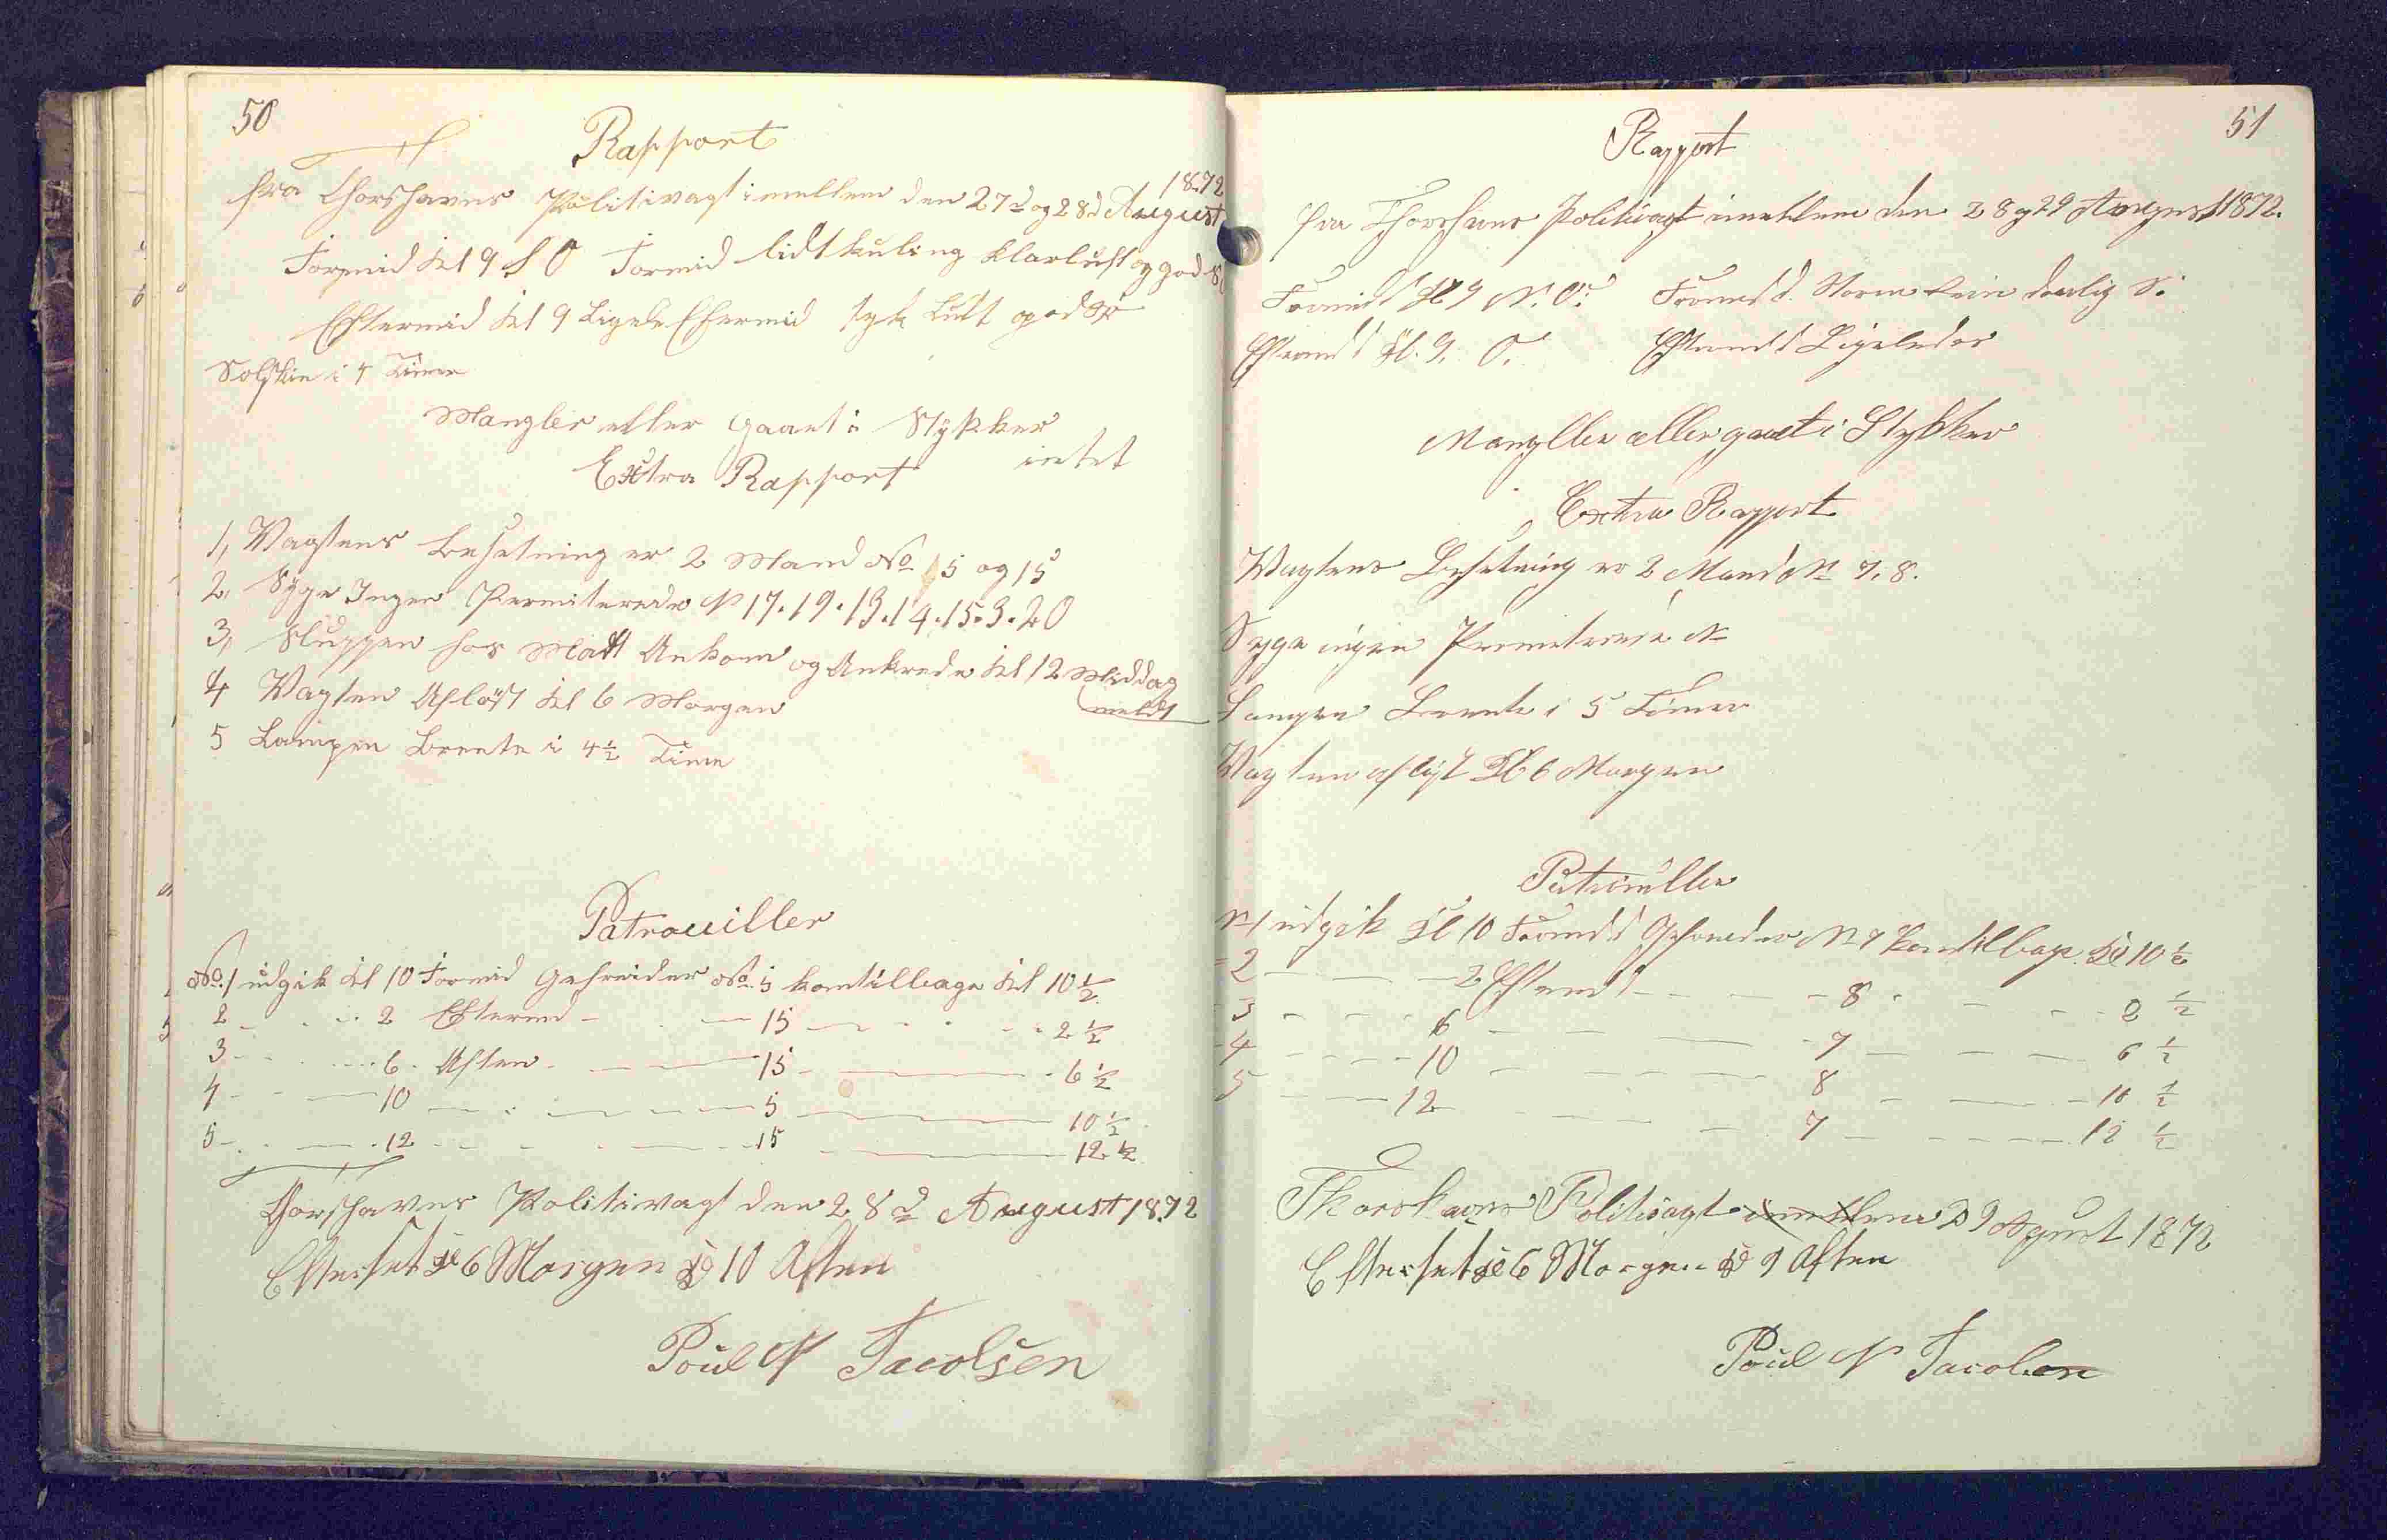 50
Rapport
fra Thorshavns Politivagt imellem den 27d og 28d August 1872
Formid Kl 9 S O Formid lidt kuling klarluft og god S
Eftermid Kl 9 Ligele Efermid tyk Luft god
Solskin i 4 Timer
Mangler eller gaaet i Stykker
intet
Extra Rapport
1, Vagtens Besetning er 2 Mand No 5 og 15
2, Syge Ingen Permiterede N 17.19.13.14.15.3.20
3, Sluppen hos Matt Ankom og Ankrede Kl 12 Middag
meldt
4 Vagten Afløst Kl 6 Morgen
5 Lampen Brente i 4½ Time
Patrouiller
No. 1 udgik Kl 10 Formid Gefreider No. 5 kom tilbage Kl 10½
2 - - 2 Efterm - - 15 - - 2½
3 - - 6 Aften - - 15 - - 6½
4 - - 10 - - 5 - - 10½
5 - - 12 - - 15 - - 12½
Thorshavns Politivagt den 28d August 1872
Efterset Kl 6 Morgen Kl 10 Aften
Poul N Jacobsen
51
Rapport
fra Thorshavns Politivagt imellem den 28 og 29 August 1872.
Formidd Kl 9 N. O. Formidd. Storm daarlig S.
Eftermdd Kl. 9. O. Eftermdd Ligeledes
Mangller eller gaaet i Stykker
Extra Rapport
Vagtens Besetning er 2 Mand No 7. 8.
Syge ingen Permiterede N
Lampen Brente i 5 Timer
Vagten afløst Kl 6 Morgen
Patruller
No 1 udgik Kl 10 Formdd Gefreider No 7 kom tilbage Kl 10½
2 - - 2 Efterm - - 8 - - 2½
3 - - 6 - - 7 - - 6½
4 - - 10 - - 8 - - 10½
5 - - 12 - - 7 - - 12½
Thorshavns Politivagt imellem 29 Agust 1872
Efterset Kl 6 Morgen Kl 9 Aften
Poul N Jacobsen